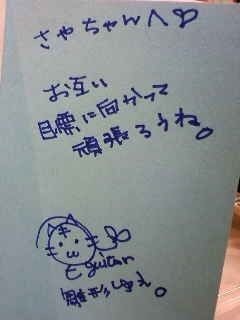 さやちゃんへ♡
お互い
目標に向かって
頑張ろうね。
E guitar